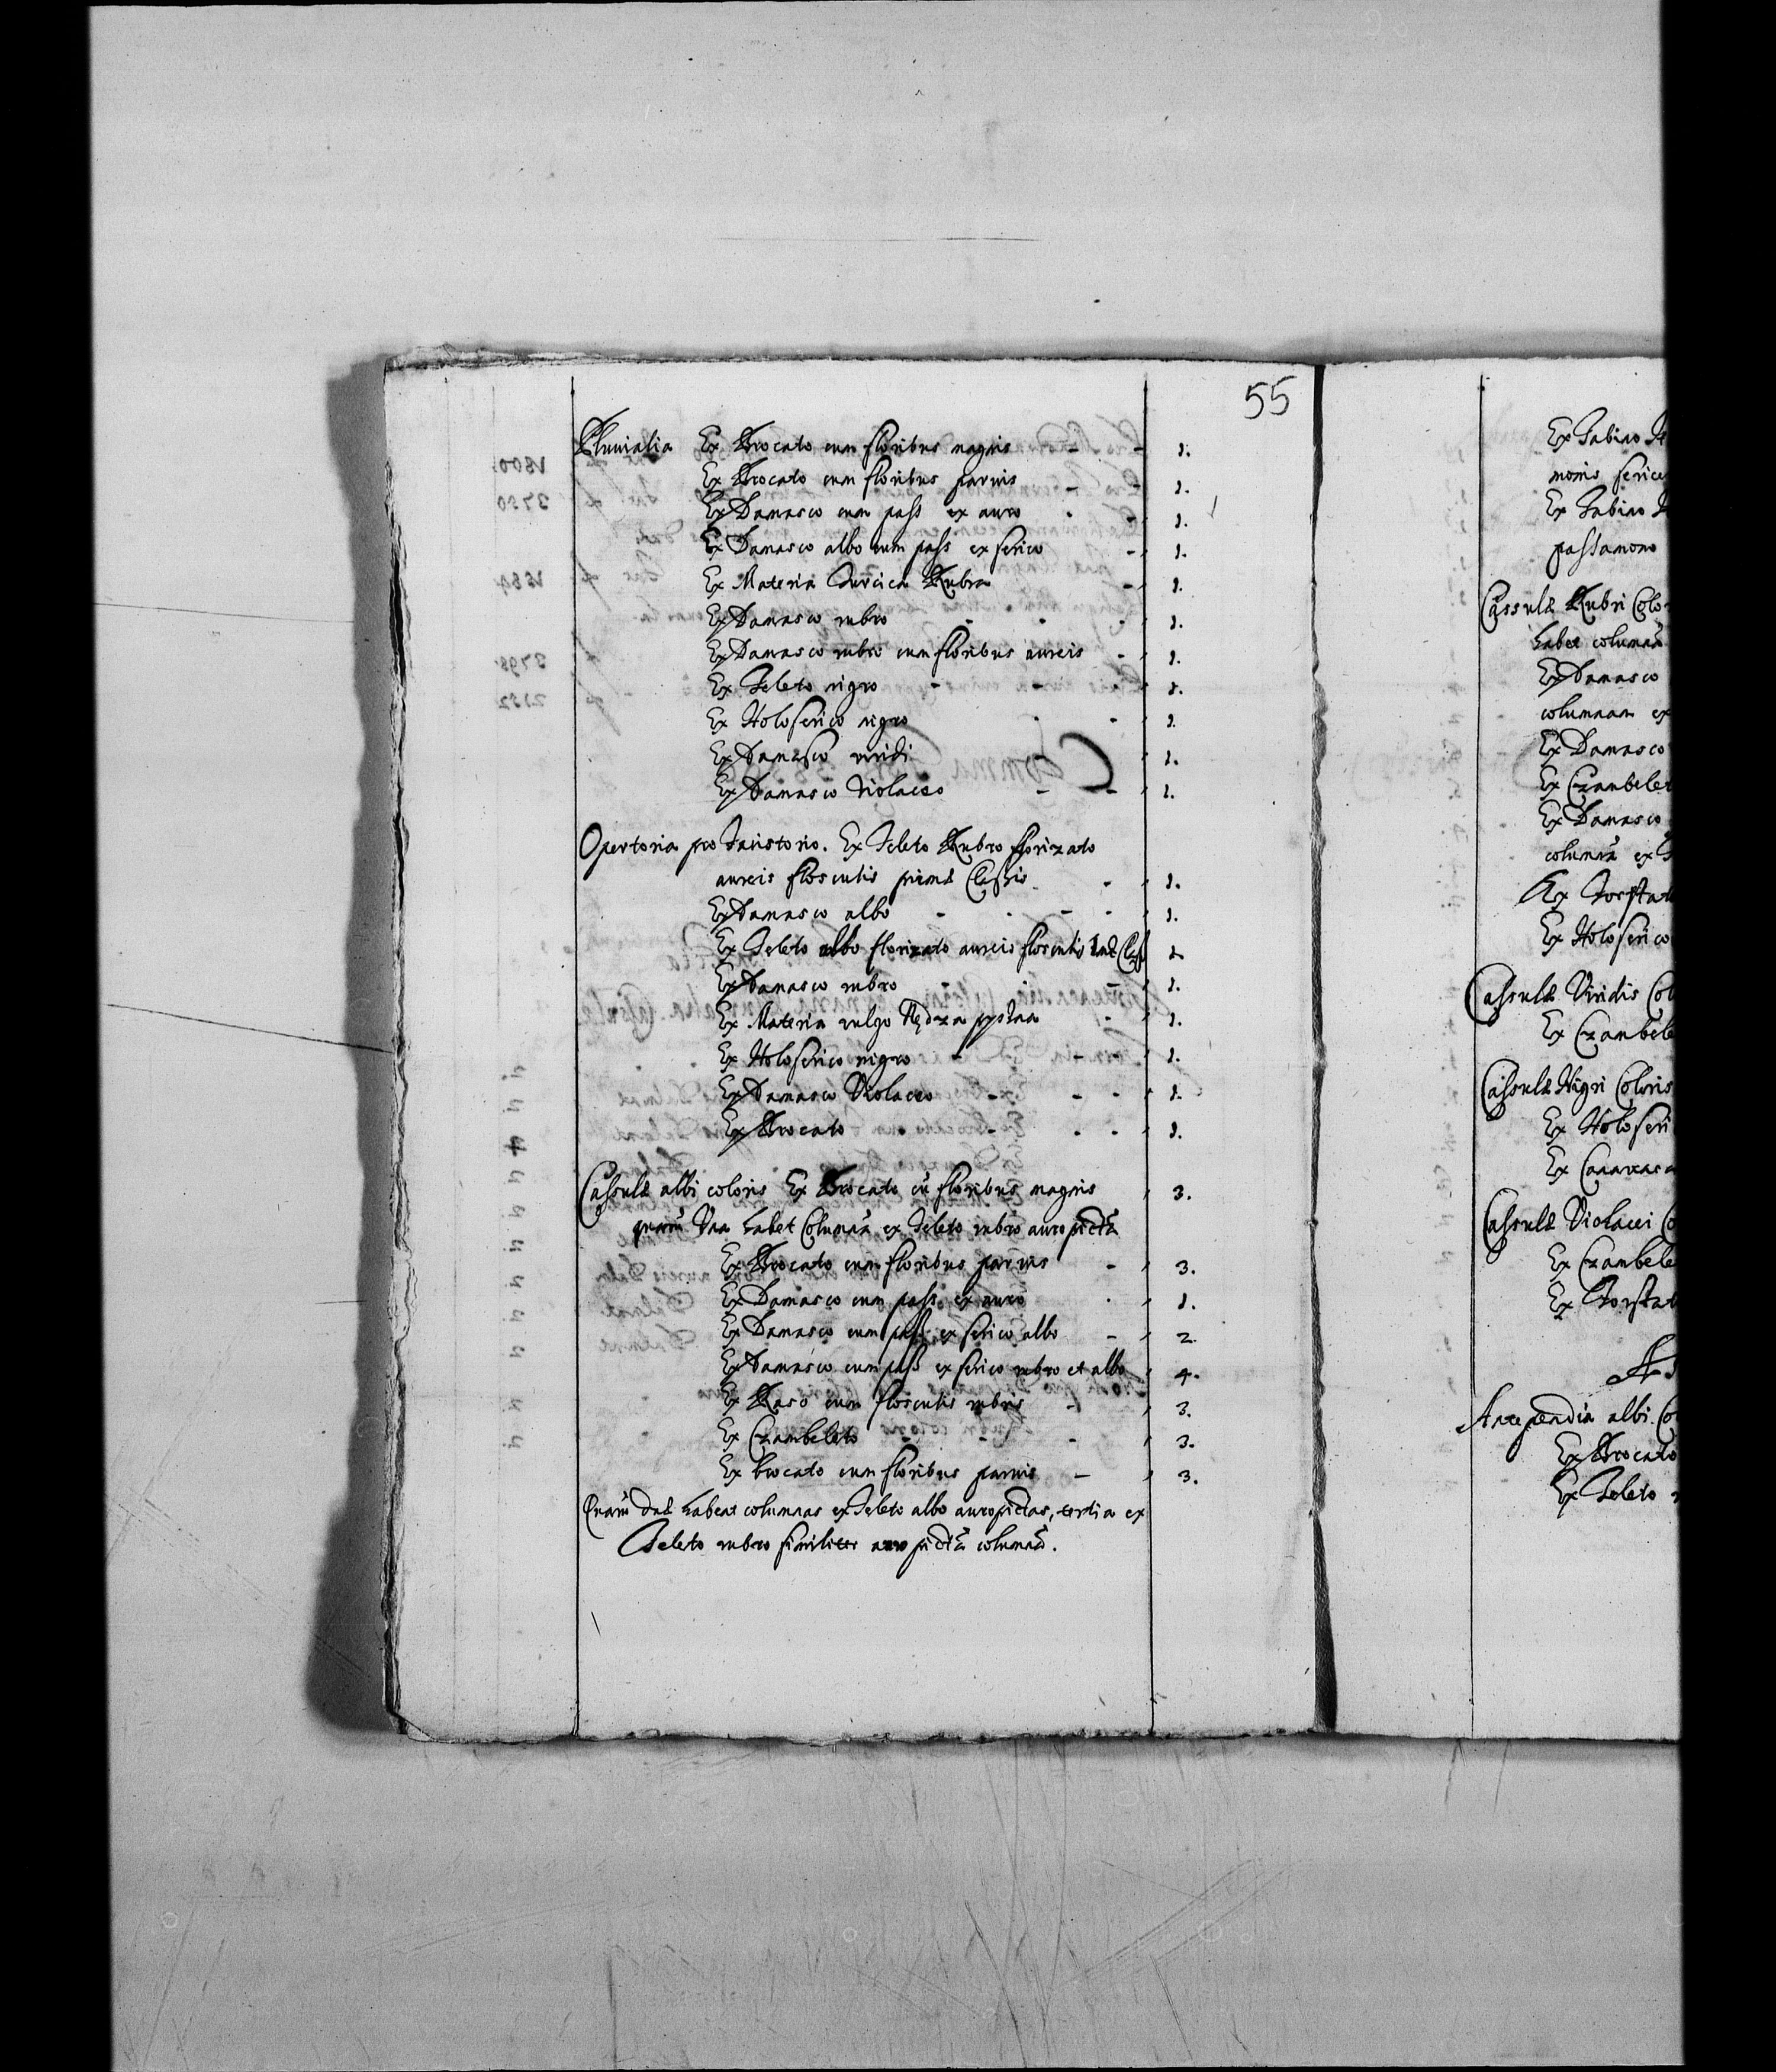 55
Pluuialia Ex Brocato cum floribus magnis - - 1.
Ex Brocato cum floribus paruis - - 1.
Ex Damasco cum pass ex auro - - 1.
Ex Damasco albo cum pass ex serico - 1.
Ex Materia Turcica Rubra - 1.
Ex Damasco rubro - - - 1.
Ex Damasco rubro cum floribus aureis - 1.
Ex Teleto nigro - - 1.
Ex Holoserico nigro - - 1.
Ex Damasco viridi 1.
Ex Damasco Violaceo - - 1.
Opertoria pro Facistorio. Ex Teleto Rubro florizato
aureis flosculis primæ Classis - 1.
Ex Damasco albo - - - - 1.
Ex Teleto albo florizato aureis flosculis Class 1.
Ex Damasco rubro - 1.
Ex Materia vulgo - 1.
Ex Holoserico nigro - - - 1.
Ex Damasco Violaceo - - - 1.
Ex Brocato - - - 1.
Casulæ albi coloris Ex Brocato cũ floribus magnis 3.
quarũ Vna habet Columnã ex Teleto rubro auro pictã
Ex Brocato cum floribus paruis - 3.
Ex Damasco cum pass ex auro - 1.
Ex Damasco cum pass ex serico albo - 2.
Ex Damasco cum pass ex serico rubro et albo 4.
Ex Raso cum flosculis rubris - 3.
Ex Czambeleto - - - 3.
Ex brocato cum floribus paruis - 3.
Quarũ duæ habent columnas ex Teleto albo auro pictas, tertia ex
Teleto rubro similiter auro pictã columnã.
Ex Tabino
monis serice
Ex Tabino
passamono
Cassulæ Rubri Color
habet columnã
Ex Damasco
columnam ex
Ex Damasco
Ex Czambelet
Ex Damasco
columnã ex
Ex
Ex Holoserico
Cassulæ Viridis Col
Ex Czambele
Cassulæ Nigri Coloris
Ex Holoseri
Ex
Cassulæ Violacei Co
Ex Czambele
Ex
Antependia albi Co
Ex Brocato
Ex Teleto